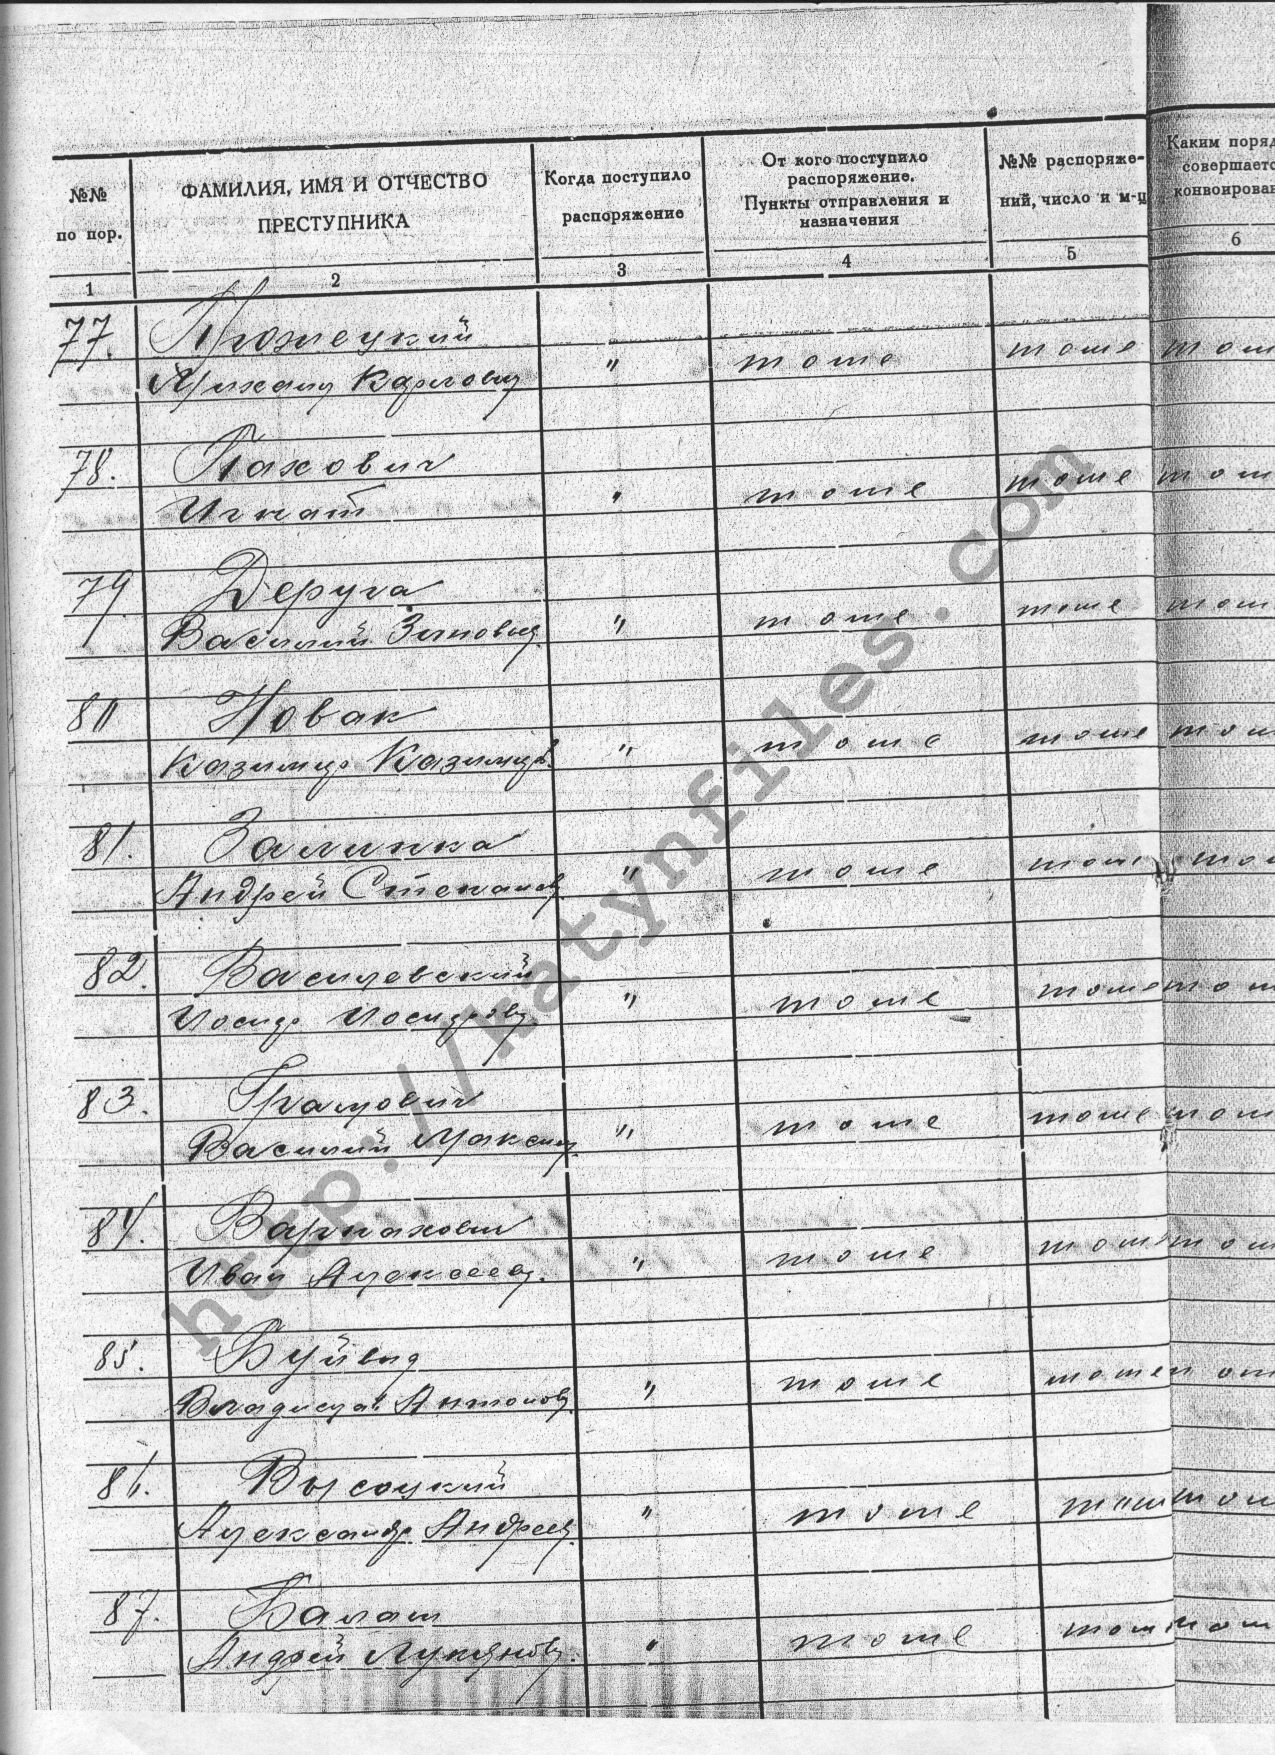 №№ по пор.
ФАМИЛИЯ, ИМЯ И ОТЧЕСТВО ПРЕСТУПНИКА
Когда поступило распоряжение
От кого поступило распоряжение. Пункты отправления и назначения
№№ распоряже- ний, число и м-ц
Каким поряд совершаетс конвоирован
1 2 3 4 5 6
77. Прожецкий
Михаил Карлович " тоже тоже тож
78. Пахович
Игнат " тоже тоже тож
79 Деруга
Василий Зинович " тоже тоже тож
80 Новак
Казимир Казимир. " тоже тоже тож
81. Залинка
Андрей Степанов " тоже тоже тож
82. Василевский
Иосиф Иосифов " тоже тоже тож
83. Грамович
Василий Максим " тоже тоже тож
84. Вархахович
Иван Алексеев. " тоже тоже тож
85. Буйвид
Владислав Антонов. " тоже тоже тож
86. Высоцкий
Александр Андреев. " тоже тоже тож
87. Балаш
Андрей Лукянов. " тоже тоже тож
http://katynfiles.com